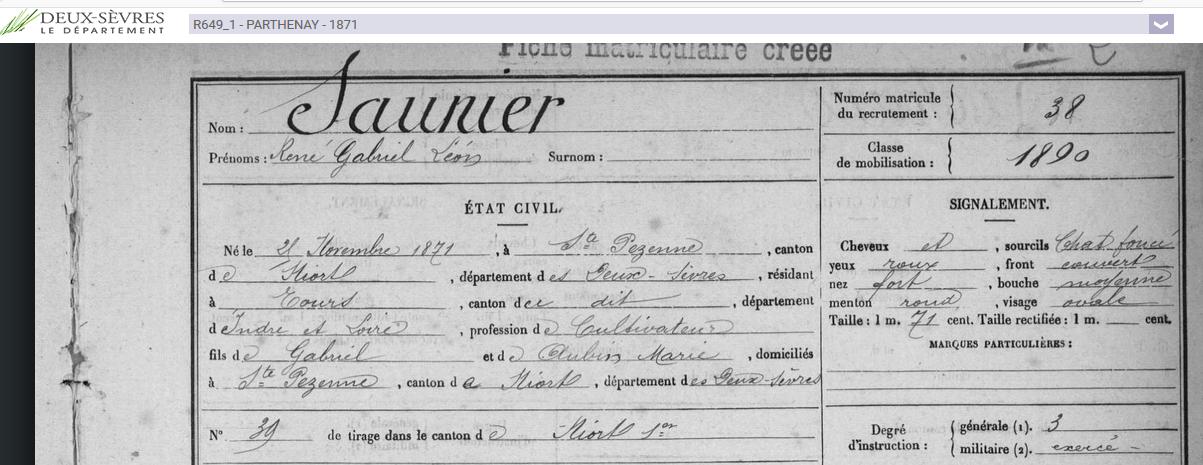 DEUX-SÈVRES
LE DÉPARTEMENT
R649_1 - PARTHENAY - 1871
Fiche matriculaire créée
Nom : Saunier
Prénoms : René Gabriel Léon Surnom :
Numéro matricule
du recrutement : 38
Classe
de mobilisation : 1890
ÉTAT CIVIL.
Né le 21 Novembre 1871, à Ste Pezenne, canton
de Niort, département des Deux-Sèvres, résidant
à Tours, canton du dit, département
d'Indre et Loire, profession de Cultivateur
fils de Gabriel et de Aubin Marie, domiciliés
à Ste Pezenne, canton de Niort, département des Deux-Sèvres
N° 39 de tirage dans le canton de Niort 1er
SIGNALEMENT.
Cheveux et, sourcils Chat. foncé
yeux roux, front couvert
nez fort, bouche moyenne
menton rond, visage ovale
Taille : 1 m. 71 cent. Taille rectifiée : 1 m. cent.
MARQUES PARTICULIÈRES :
Degré
d'instruction : générale (1). 3
militaire (2). exercé